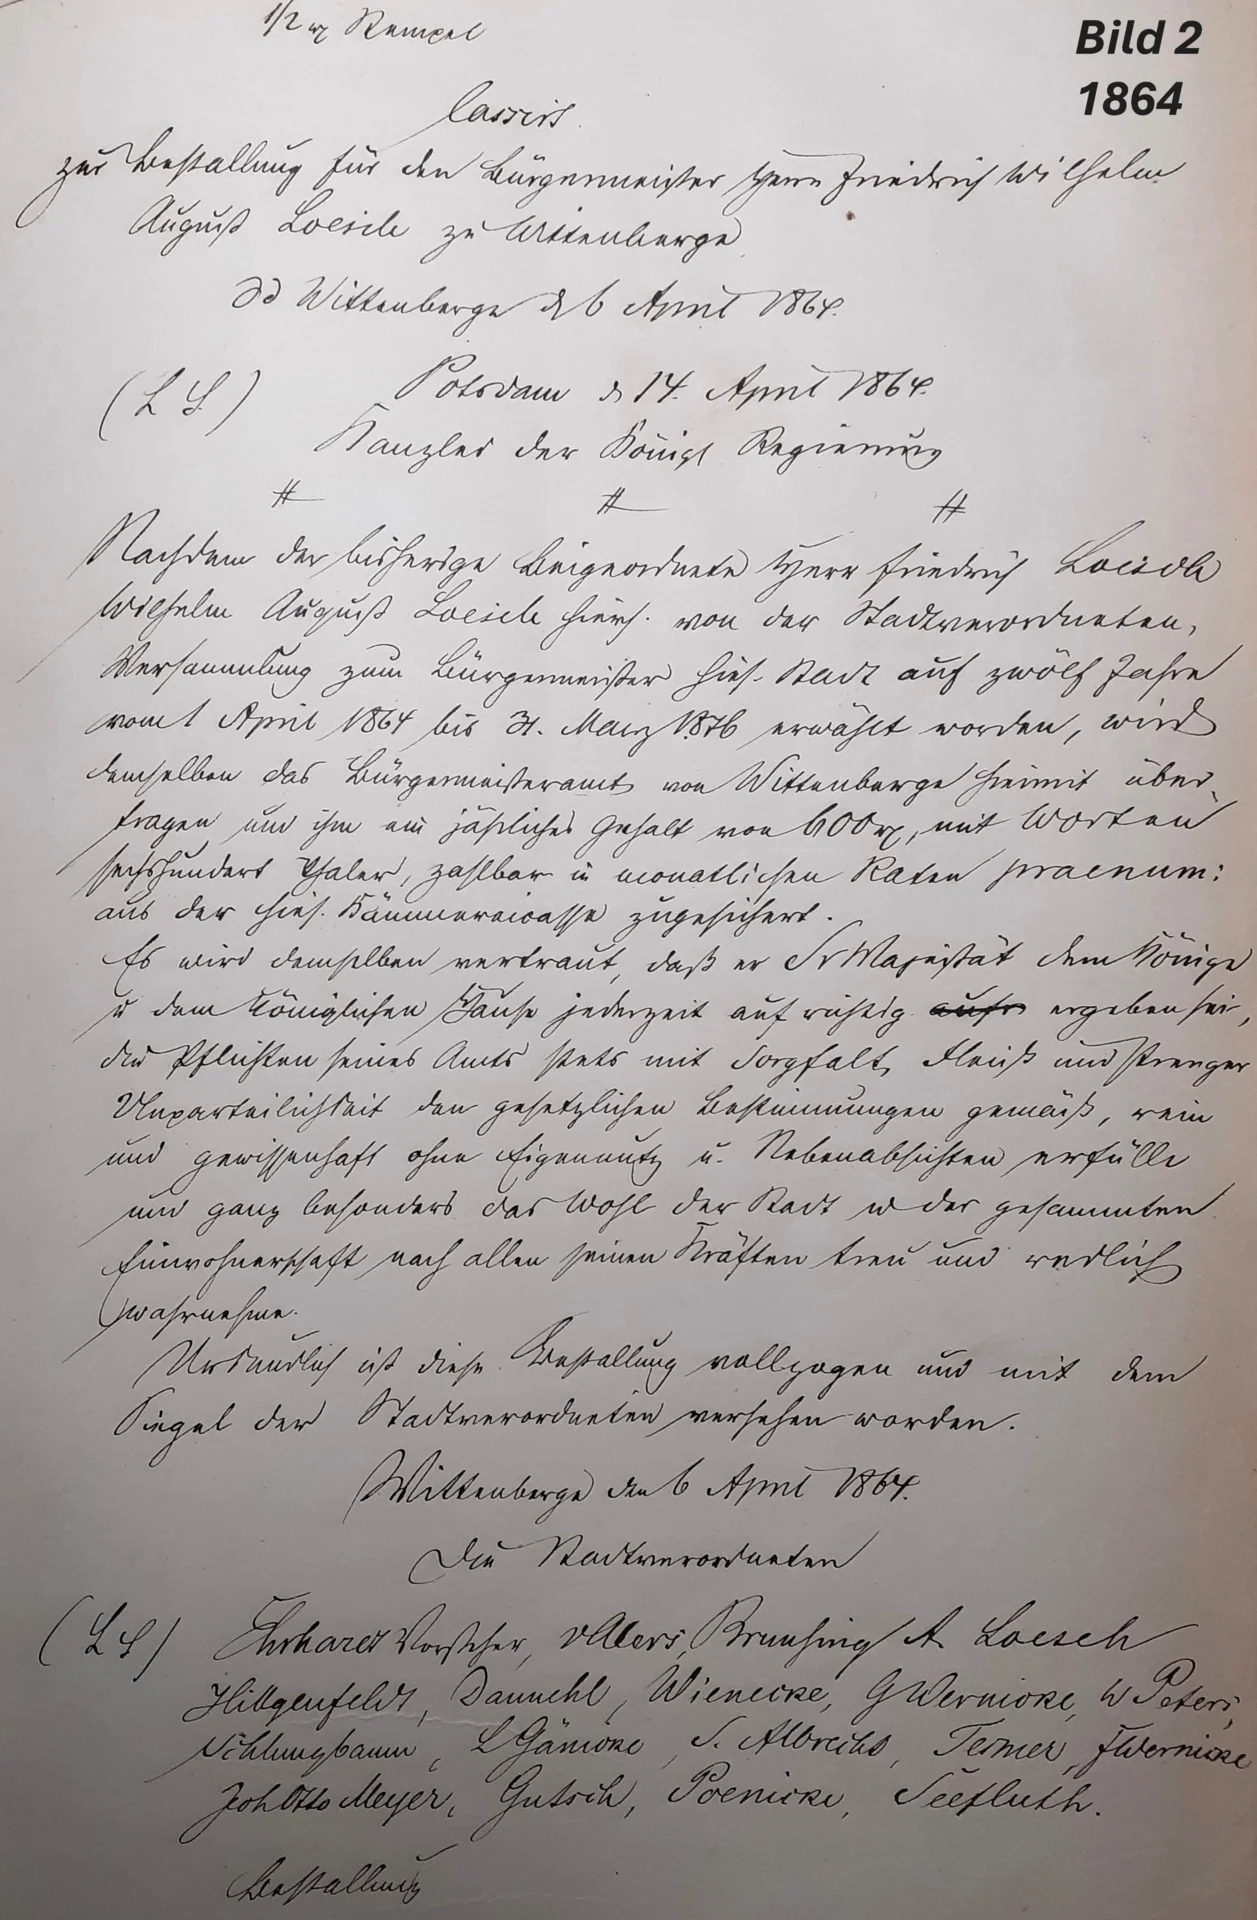 1/2 rt Stempel
Bild 2
1864
Cassirt.
zur Bestallung für den Bürgermeister Herrn Friedrich Wilhelm
August Loesch zu Wittenberge
dd Wittenberge d 6 April 1864.
(L S.) Potsdam d 14. April 1864.
Kanzlei der Königl Regierung
Nachdem der bisherige Beigeordnete Herr Friedrich Loesch
Wilhelm August Loesch hiers. von der Stadtverordneten,
Versammlung zum Bürgermeister hies. Stadt auf zwölf Jahre
vom 1 April 1864 bis 31. März 1876 erwählt worden, wird
demselben das Bürgermeisteramt von Wittenberge hiermit über-
tragen und ihm ein jährliches Gehalt von 600 rt, mit Worten
sechshundert Thaler, zahlbar in monatlichen Raten praenum:
aus der hies. Kämmereicasse zugesichert.
Es wird demselben vertraut, daß er Sr Majestät dem Könige
u dem Königlichen Hause jederzeit aufrichtig aufr ergeben sei,
die Pflichten seines Amts stets mit Sorgfalt, Fleiß und strenger
Unparteilichkeit den gesetzlichen Bestimmungen gemäß, rein
und gewissenhaft ohne Eigennutz u. Nebenabsichten erfülle
und ganz besonders das Wohl der Stadt u der gesammten
Einwohnerschaft nach allen seinen Kräften treu und redlich
wahrnehme.
Urkundlich ist diese Bestallung vollzogen und mit dem
Siegel der Stadtverordneten versehen worden.
Wittenberge den 6 April 1864.
Die Stadtverordneten
(L S) Ehrhardt Vorsteher, Brunsing A. Loesch
Hillgenfeldt, Dannehl, Wienecke, G Wernicke, W Peters,
L Gänicke, S. Albrecht, Termer, F Wernicke
Joh Otto Meyer, Gutsch, Poenicke, Seefluth.
Bestallung